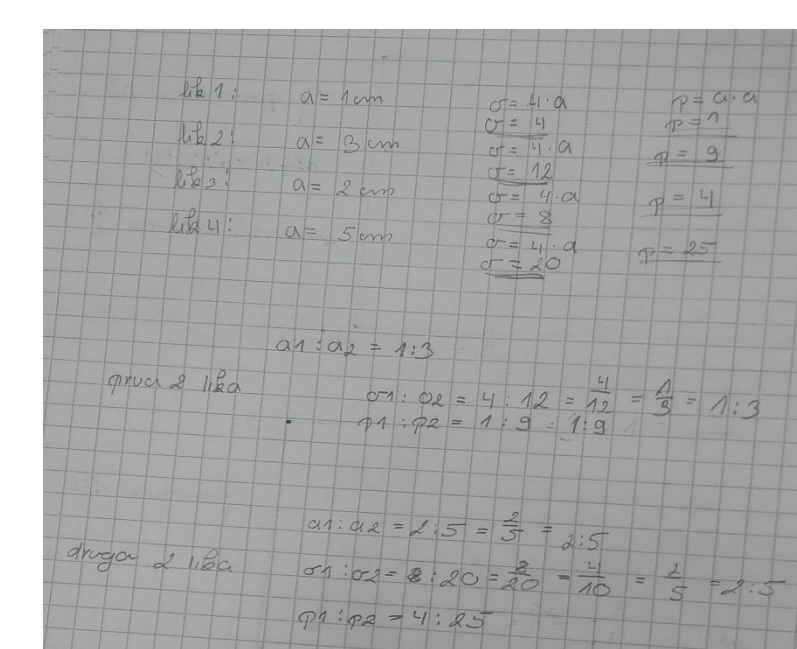 lik 1: a = 1 cm o = 4·a p = a·a
o = 4 p = 1
lik 2: a = 3 cm o = 4·a p = 9
o = 12
lik 3: a = 2 cm o = 4·a p = 4
o = 8
lik 4: a = 5 cm o = 4·a p = 25
o = 20
a1 : a2 = 1:3
prva 2 lika o1 : o2 = 4 : 12 = 4/12 = 1/3 = 1:3
p1 : p2 = 1 : 9 = 1:9
a1 : a2 = 2:5 = 2/5 = 2:5
druga 2 lika o1 : o2 = 8 : 20 = 8/20 = 4/10 = 2/5 = 2:5
p1 : p2 = 4 : 25